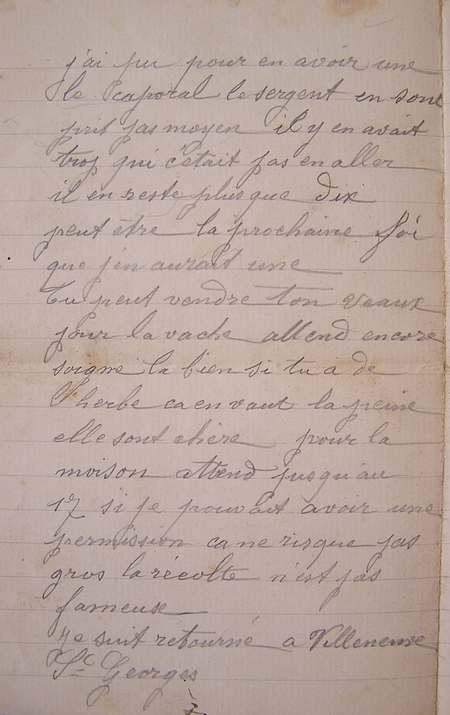 j'ai pu pour en avoir une
le caporal le sergent en sont
prit pas moyen il y en avait
trop qui était pas en aller
il en reste plus que dix
peut être la prochaine foi
que j'en aurait une
Tu peut vendre ton veaux
pour la vache attend encore
soigne la bien si tu a de
l'herbe ca en vaut la peine
elle sont chère pour la
moison attend jusqu'au
17 si je pouvait avoir une
permission ca ne risque pas
gros la récolte n'est pas
fameuse
Je suit retourné a Villeneuve
St Georges